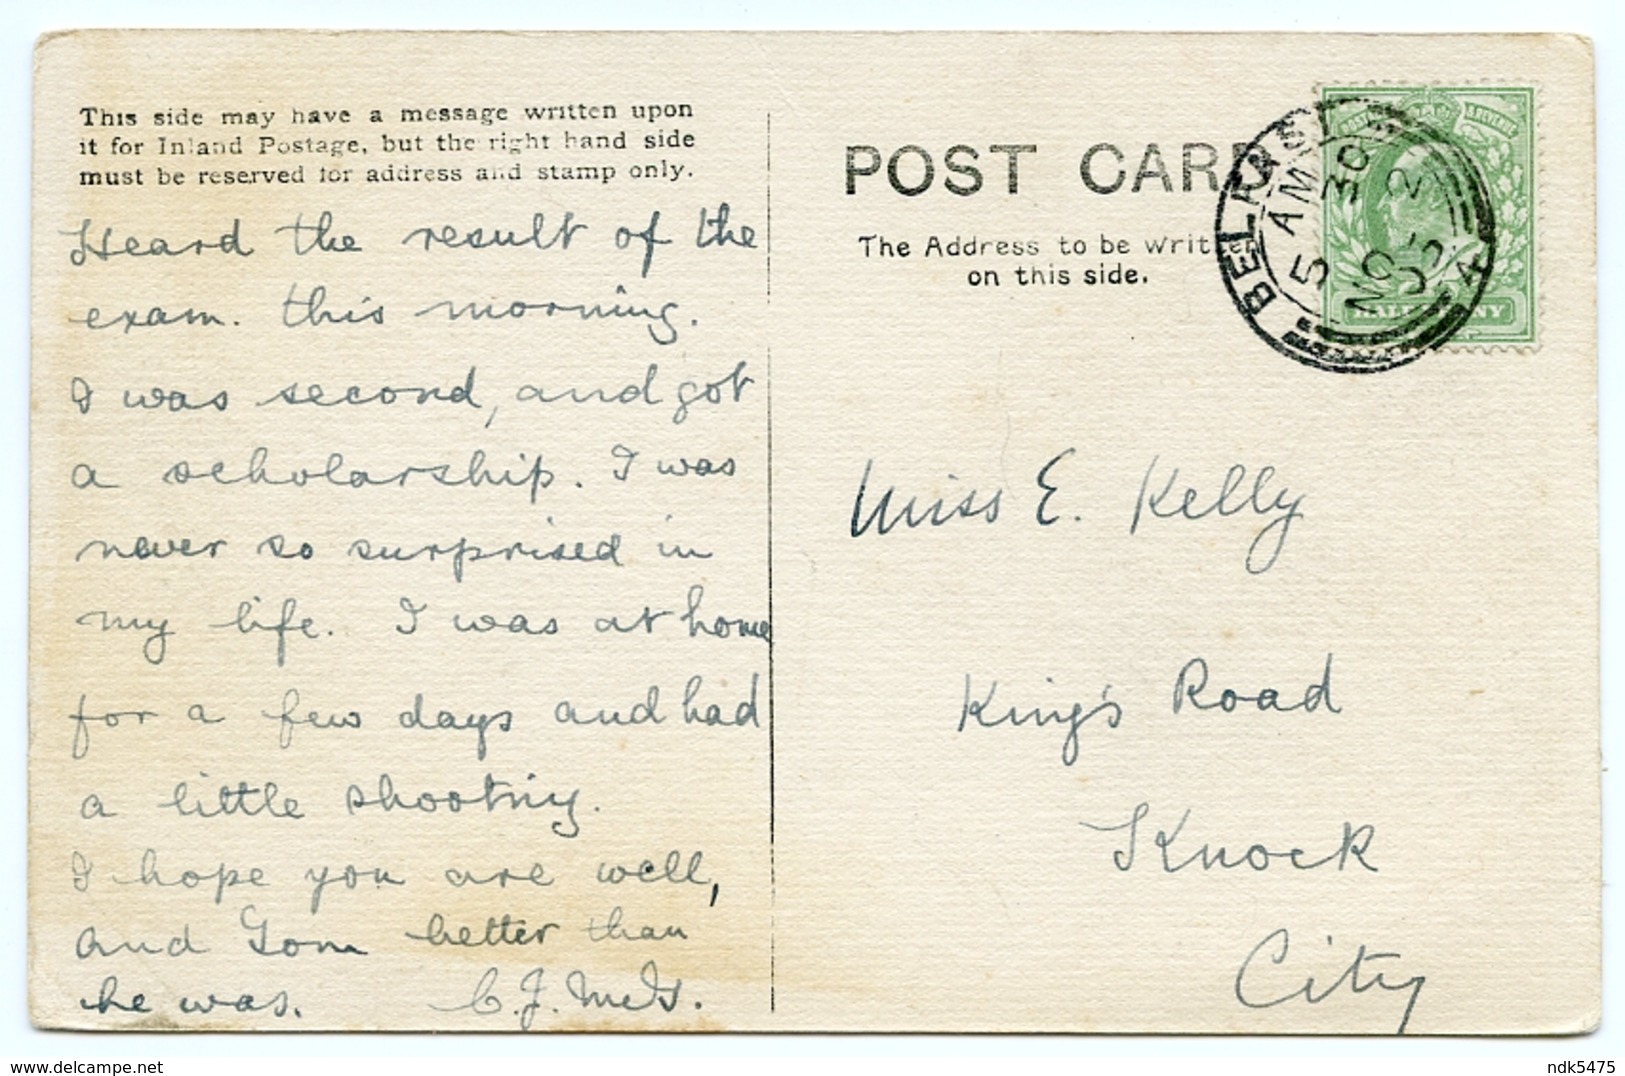 This side may have a message written upon
it for Inland Postage, but the right hand side
must be reserved for address and stamp only.
Heard the result of the
exam. this morning.
I was second, and got
a scholarship. I was
never so surprised in
my life. I was at home
for a few days and had
a little shooting.
I hope you are well,
and Tom better than
he was.
POST CARD
The Address to be written
on this side.
BELFAST
5 AM
NO 30
05
4
POSTAGE & REVENUE
HALFPENNY
Miss E. Kelly
King's Road
Knock
City
delcampe.net
ndk5475